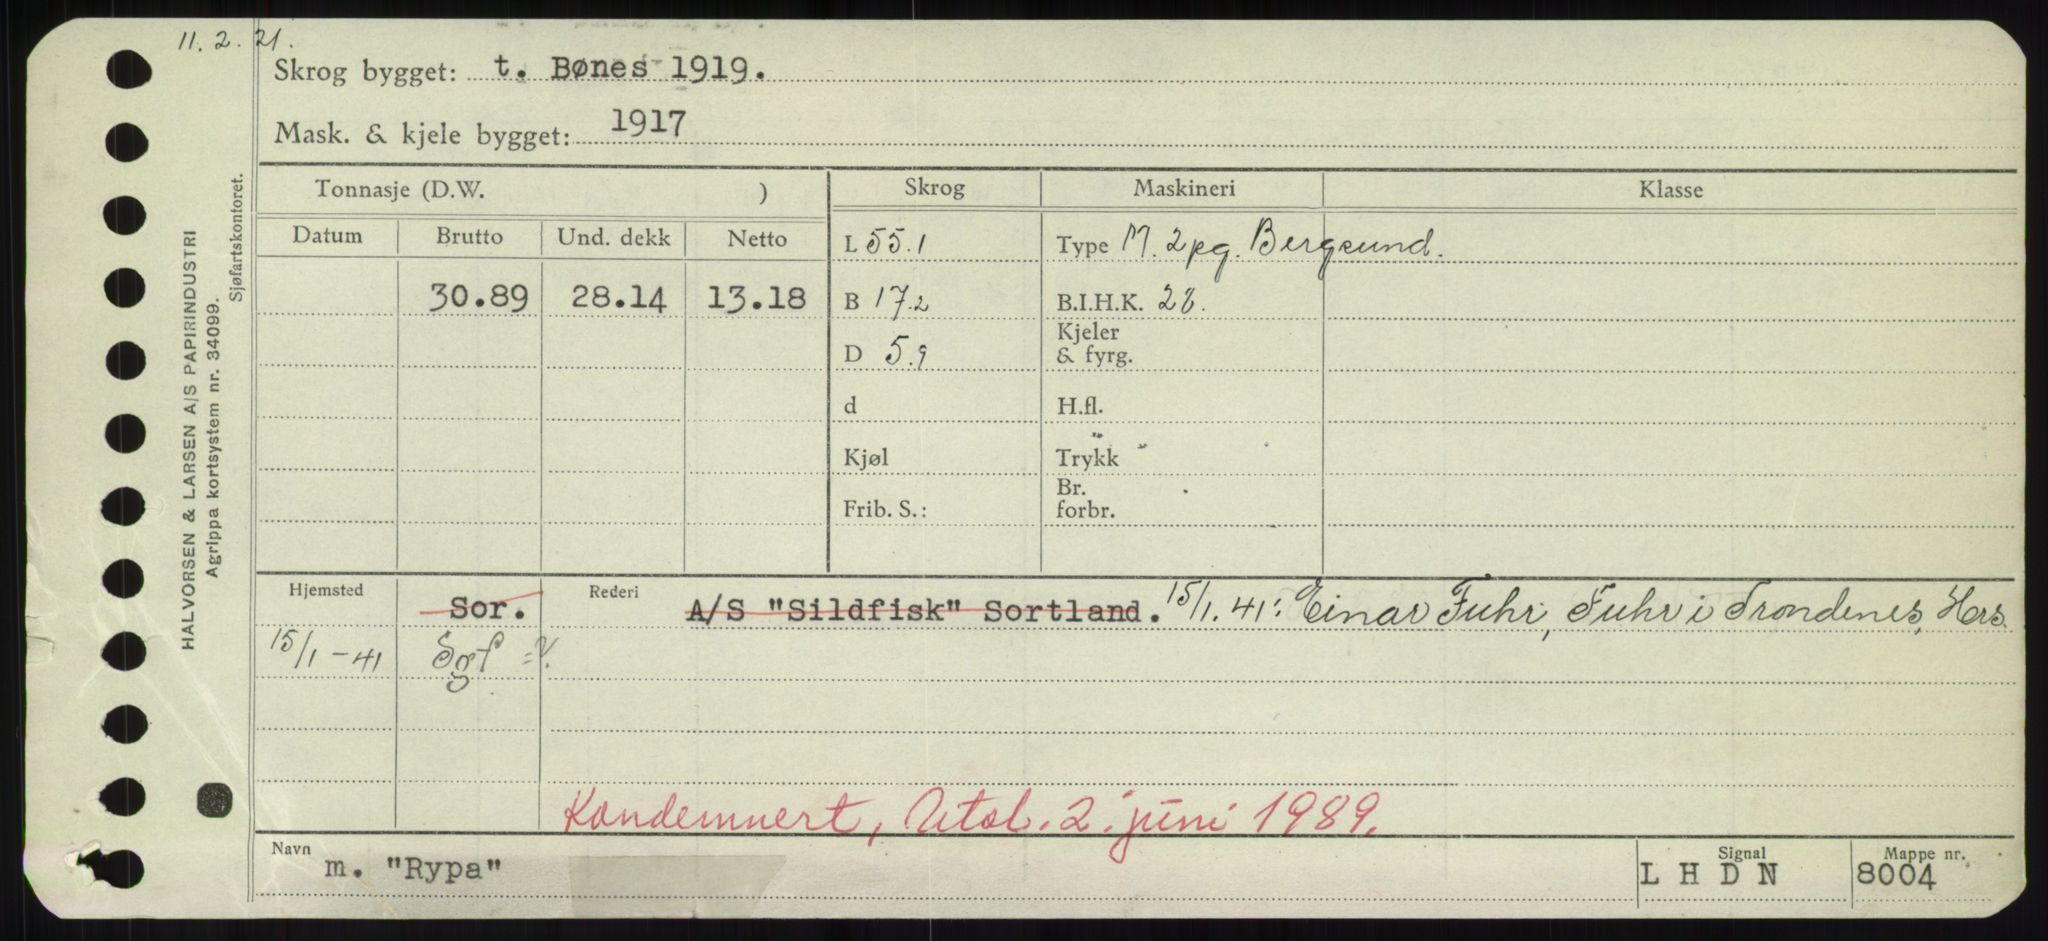 11. 2. 21.
Skrog bygget: t. Bønes 1919.
Mask. & kjele bygget: 1917
HALVORSEN & LARSEN A/S PAPIRINDUSTRI
Agrippa kortsystem nr. 34099.
Sjøfartskontoret.
Tonnasje (D.W. ) Skrog Maskineri Klasse
Datum Brutto Und. dekk Netto L 55.1 Type M. 2 pg. Bergsund.
30.89 28.14 13.18 B 17.2 B.I.H.K. 28.
D 5.9 Kjeler & fyrg.
d H.fl.
Kjøl Trykk
Frib. S.: Br. forbr.
Hjemsted Sor. Rederi A/S "Sildfisk" Sortland. 15/1. 41: Einar Fuhr, Fuhr i Trondenes, Hers.
15/1-41 Sgf
Kondemnert, Utsl. 2. juni 1989.
Navn m. "Rypa" Signal L H D N Mappe nr. 8004